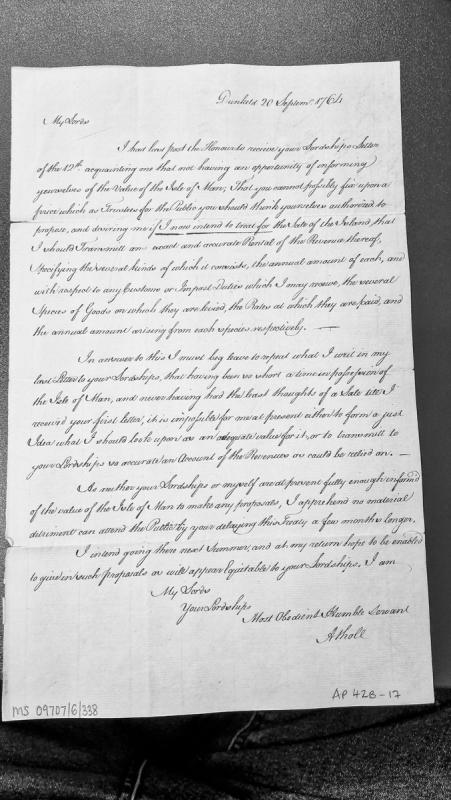 Dunkeld 20 Septemr. 1764
My Lords
I had last post the Honour to receive your Lordships Letter
of the 12th. acquainting me that not having an opportunity of informing
yourselves of the Value of the Isle of Man, That you cannot possibly fix upon a
price which as Trustees for the Public you should think yourselves authorized to
propose, and desiring me if I now intend to treat for the Sale of the Island, that
I should Transmitt an exact and accurate Rental of the Revenue thereof,
Specifying the several kinds of which it consists, the annual amount of each, and
with respect to any Customs or Impost Duties which I may receive, the several
Species of Goods on which they are levied, the Rates at which they are paid, and
the annual amount arising from each species respectively. —
In answer to this I must beg leave to repeat what I writ in my
last Letter to your Lordships, that having been so short a time in possession of
the Isle of Man, and never having had the least thoughts of a Sale till I
received your first letter, it is impossible for me at present either to form a just
Idea what I should look upon as an adequate value for it, or to transmitt to
your Lordships so accurate an Account of the Revenues as could be relied on. —
As neither your Lordships or myself are at present fully enough informd
of the value of the Isle of Man to make any proposals, I apprehend no material
detriment can attend the Public by your delaying this Treaty a few months longer.
I intend going there next Summer, and at my return hope to be enabled
to give in such proposals as will appear Equitable to your Lordships. I am
My Lords
Your Lordships
Most Obedient Humble Servant
Atholl
MS 09707/6/338
AP 42B-17